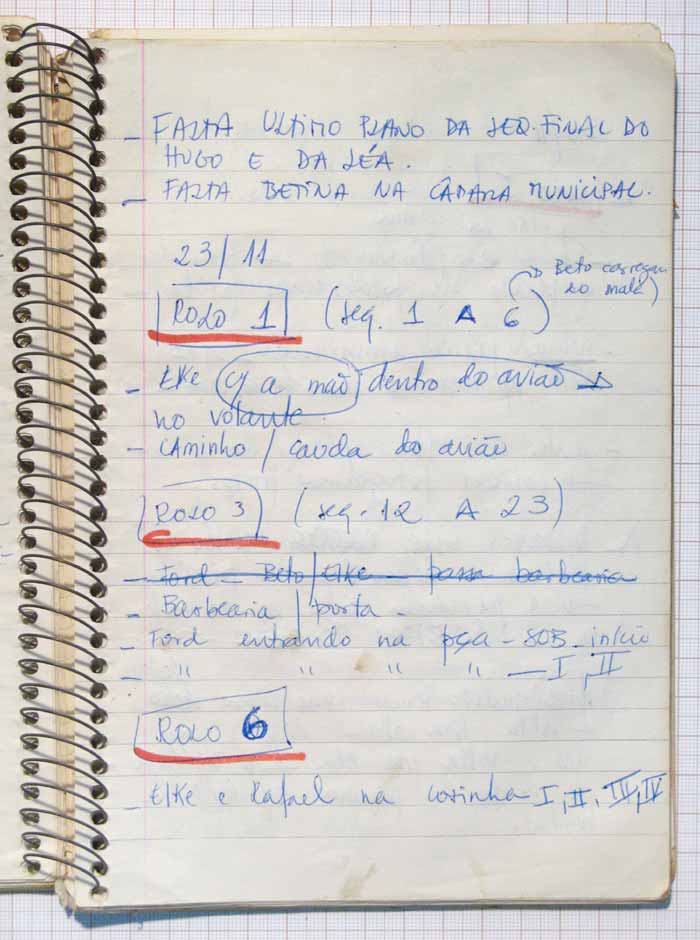 - FALTA ULTIMO PLANO DA SEQ. FINAL DO
HUGO E DA LÉA.
- FALTA BETINA NA CÂMARA MUNICIPAL.
23/11
Beto carregan
do mala)
ROLO 1 (seq. 1 A 6)
- Elke a mão dentro do avião
no volante
- CAMINHO / cauda do avião
ROLO 3 (seq. 12 A 23)
- Ford - Beto / Elke - passa barbearia
- Barbearia / porta -
- Ford entrando na pça - 803 - início
- " " " " - I, II
ROLO 6
- Elke e Rafael na cosinha I, II, III, IV